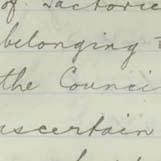 of factorie
belonging
the Counci
ascertain